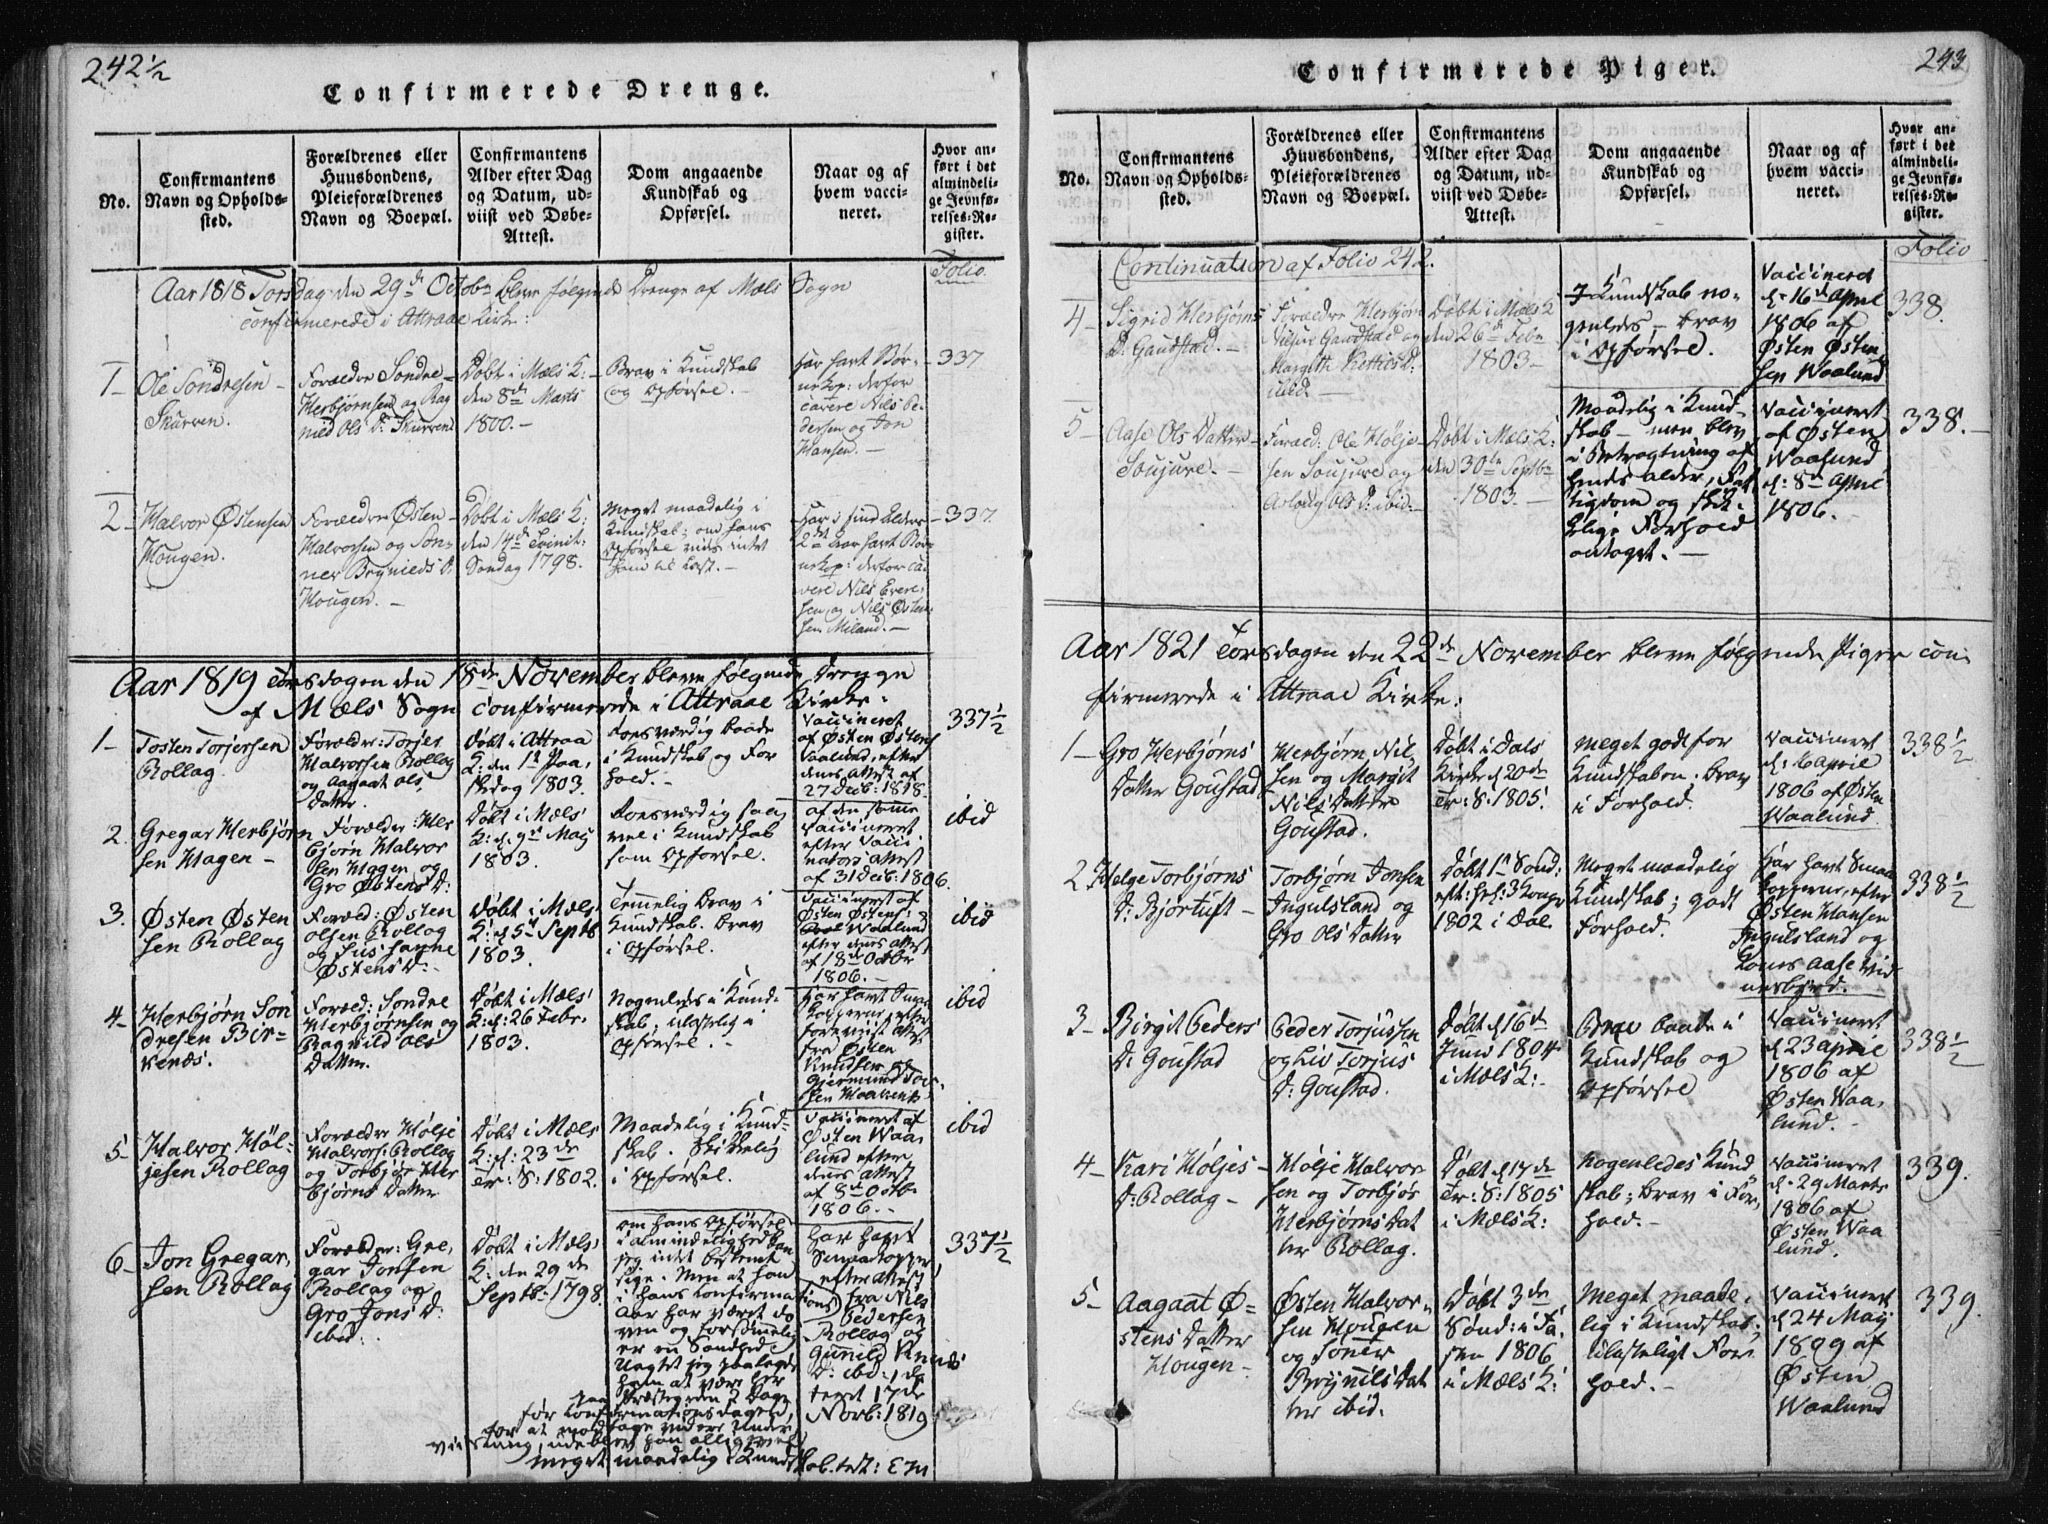 242½
Confirmerede Drenge.
No.
Confirmantens
Navn og Opholds-
sted.
Forældrenes eller
Huusbondens,
Pleieforældrenes
Navn og Boepæl.
Confirmantens
Alder efter Dag
og Datum, ud-
viist ved Døbe-
Attest.
Dom angaaende
Kundskab og
Opførsel.
Naar og af
hvem vacci-
neret.
Hvor an-
ført i det
almindeli-
ge Jevnfø-
relses-Re-
gister.
Folio
Aar 1818 Torsdag den 29de Octobr bleve følgende Drenge af Mæls Sogn
confirmerede i Attraae Kirke:
1-
Ole Sondresen
Skurven.
Forældre Sondre
Herbjørnsen og Rag
nild Ols D: Skurven
Døbt i Mæls K:
den 8de Marts
1800.-
Brav i Kundskab
og Opførsel.
Har havt Bør-
nekop: derfor
cavere Nils Pe-
dersen og Jon
Hansen.-
337
2-
Halvor Østensen
Hougen.
Forældre Østen
Halvorsen og Søn-
ner Brynilds D.
Hougen.-
Døbt i Mæls K:
den 14de Trinit:
Søndag 1798.
Meget maadelig i
Kundskab; om hans
Opførsel vides intet
Har i sind Alders
2det Aar havt Bør-
nekop: derfor ca-
vere Nils
sen og Nils Østen-
sen Miland.-
337
Aar 1819 Torsdagen den 18de November bleve følgende Drenge
af Mæls Sogn confirmerede i Attraae Kirke:
1-
Tosten Torjersen
Rollag.
Forældre: Torjer
Halvorsen Rollag
og Aagaat Ols
Datter.
Døbt i Attraa
K: den 1st Paa,
skedag 1803.
Forsværdig baade
i Kundskab og For
hold.-
Vaccineret
af Østen Østens
Vaalund, efter
dens Attest af
27 Decb: 1818.
337½
2.
Gregar Herbjørn
sen Hagen-
Forældre: Her
bjørn Halvor
sen Hagen og
Gro Østens D:
Døbt i Mæls
K: d. 9de May
1803.
Forsværdig saa
vel i Kundskab
som Opførsel.
af den samme
Vaccineret
efter Vacci
nators Attest
af 31 Decb: 1806.
ibid
3.
Østen Østen
sen Rollag
Foræld: Østen
Olsen Rollag
og
Østens D:-
Døbt i Mæls
K: d. 5te Septb
1803.
Temmelig brav i
Kundskab. Brav
i Opførsel.
Vaccineret af
Østen Østens:
Waalund
efter dens Attest
af 18de Octbr
1806.-
ibid
4-
Herbjørn Son
dresen Bir-
kenæs.
Foræld: Sondre
Herbjørnsen og
Ragnild Ols
Datter.
Døbt i Mæls
K: d: 26 Febr.
1803.
Nogenledes i Kund-
skab; ulastelig i
Opførsel.-
Har havt Smaa
kopperne, efter
foreviist Attest
fra Østen
Knudsen og
Gjermund Tor-
sen
ibid
5-
Halvor Høl-
jesen Rollag
Forældre Hølje
Halvors: Rollag
og Torbjør Her
bjørns Datter
Døbt i Mæls
K: d: 23de
Tr: S: 1802.
Maadelig i Kund-
skab. Skikkelig
i Opførsel.
Vaccineret af
Østen Waa
lund efter
dens Attest
af 8de Octb
1806.-
ibid
6-
Jon Gregar,
sen Rollag
Forældre: Gre,
gar Jonsen
Rollag og
Gro Jons D:
ibid.
Døbt i Mæls
K: den 29de
Septb: 1798.
om hans Opførsel
i almindelighed kan
jeg intet bestemt
sige. Men at han
i hans Confirma
tions
Aar har været do
ven og forsømmelig
er en Sandhed.
Uagtet jeg paalagde
ham at være her
paa Præstegaarden 2 Dage
før Confirmationsdagen,
for at modtage videre Under
viisning, udeblev han alligevel
meget maadelig i Kundskab.
Har havt
Smaakopper,
efter Attest
fra Nils
Pedersen
Rollag og
Gunnild Knuds
D: ibid, da
teret 17de
Novb: 1819
337½
243
Confirmerede Piger.
No.
Confirmantens
Navn og Opholds-
sted.
Forældrenes eller
Huusbondens,
Pleieforældrenes
Navn og Boepæl.
Confirmantens
Alder efter Dag
og Datum, ud-
viist ved Døbe-
Attest.
Dom angaaende
Kundskab og
Opførsel.
Naar og af
hvem vacci-
neret.
Hvor an-
ført i det
almindeli-
ge Jevnfø-
relses-Re-
gister.
Folio
Continuation af Folio 242.
4-
Sigrid Herbjørns
D: Gaustad.-
Forældre Herbjørn
Nilsen Gaustad og
Margith
ibid.-
Døbt i Mæls K
den 26de Febr
1803-
I Kundskab no-
genledes- brav
i Opførsel.
Vaccineret
d. 16de April
1806 af
Østen Østen
sen Waalund
338.
5-
Aase Ols Datter
Soujure.-
Foræld: Ole Hølje-
sen Soujure og
Aslaug Ols D: ibid.-
Døbt i Mæls K:
den 30te Septbr
1803.-
Maadelig i Kund-
skab- men blev
i Betragtning af
hendes alder, Fat,
tigdom og skik-
kelige Forhold
antaget.-
Vaccineret
af Østen
Waalund
d: 8de April
1806.
338.-
Aar 1821 Torsdagen den 22de November bleve følgende Piger con-
firmerede i Attraae Kirke:
1-
Gro Herbjørns
Datter Goustad
Herbjørn Nil-
sen og Margit
Nils Datter
Goustad.
Døbt i Dals
Kirke d. 20de
Tr: S: 1805.
Meget godt for
Kundskaben. brav
i Forhold.
Vaccineret
d. 6 April
1806 af Østen
Waalund
338½
2.
Helge Torbjørns
D: Bjørtuft-
Torbjørn Jonsen
Ingulsland og
Gro Ols Datter
Døbt 1st Sønd:
eft: Hel: 3 Konger
1802 i Dal.
Meget maadelig
Kundskab; godt
Forhold.
Har havt Smaa
kopperne, efter
Østen Hansen
Ingulsland og
Aase Vid
nesbyrd.
338½
3-
Birgit Peders
D: Goustad
Peder Torjussen
og Liv Torjus
D: Goustad.
Døbt d. 16de
Juni 1804
i Mæls K:-
Brav baade i
Kundskab og
Opførsel
Vaccineret
d. 23 April
1806 af
Østen Waa,
lund.-
338½
4-
Kari Høljes-
D: Rollag-
Hølje Halvor
sen og Torbjør
Herbjørns Dat
ter Rollag.
Døbt d. 17de
Tr: S: 1805
i Mæls K:
Nogenledes Kund
skab; brav i For,
hold.-
Vaccineret
d. 29 Marts
1806 af
Østen Waa
lund.
339.
5-
Aagaat Ø-
stens Datter
Hougen-
Østen Halvor-
sen Hougen
og Sonner
Brynils Dat
ter ibid.
Døbt 3de
Sønd: i Fa,
sten 1806
i Mæls K:
Meget maade,
lig i Kundskab;
ulasteligt For
hold.-
Vaccineret
d. 24 May
1809 af
Østen
Waalund
339.